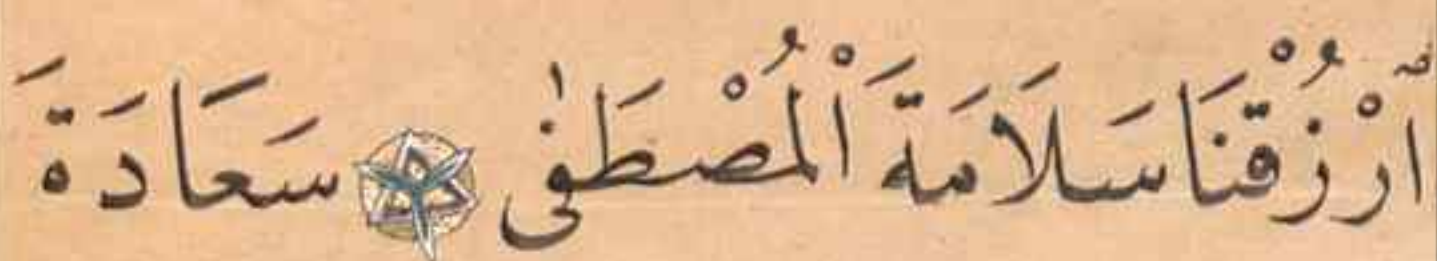 ٱرْزُقْنَا سَلَامَةَ ٱلْمُصْطَفٰى سَعَادَةَ